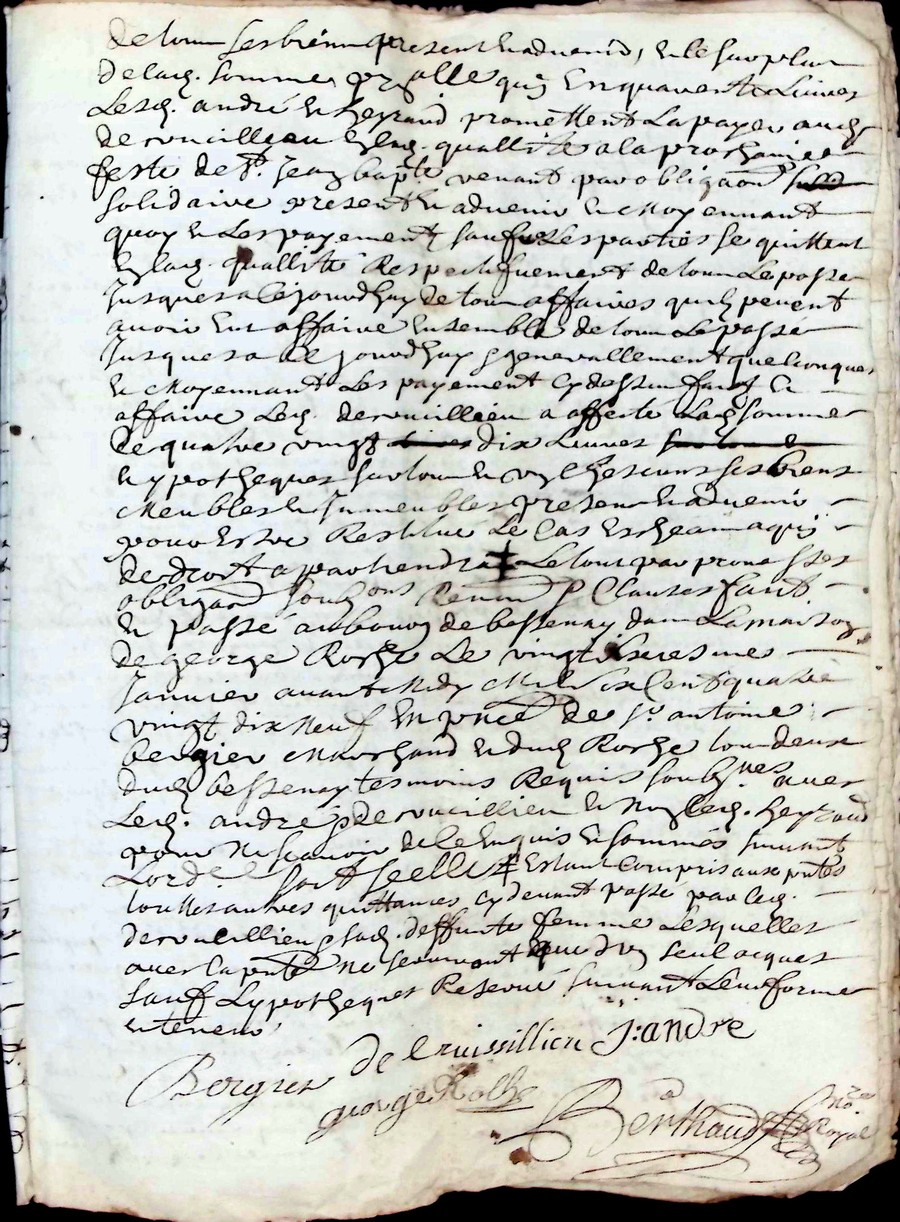 de tous ses biens present et advenir, et le surplus
de lad. somme pr alle qui en quarante Livres
Lesd. andré et heyraud promettent La payer aud.
de cruissillieu en lad. quallité a la prochaine
feste de St. Jean bapte venant par obligaon
solidaire present et advenir et Moyennant
quoy et Les payement sauf Les parties se quittent
en lad. quallité Respectifvement de tout Le passé
Jusques a ce jourdhuy de tous affaires quils peuvent
avoir eut affaire ensemble de tout Le passé
Jusques a ce jourdhuy generallement quelconques
et Moyennant Les payement cy dessus fait et
affaire Led. de cruissillieu a affecté Lad. somme
de quatre vingt dix Livres
et ypothequer sur tous et chescuns ses biens
Meubles et Immeubles present et advenir
pour Estre Restitué Le Cas Escheant a qui
de droit apartiendra Le tout par promesses
obligaons soubons Renon et Clauses fait
et passé au bourg de bessenay dans La maison
de george Roche Le vingt
Janvier avant Midy Mil six Cent quatre
vingt dix Neuf En pnce de sr. antoine
bergier Marchand et dud. Roche tous deux
dud. bessenay tesmoins Requis soubsnes avec
Led. andré de cruissillieu et Non led. heyraud
pour ne scavoir de ce Enquis et sommés suivant
Lordce soit seellé Estant compris aux pntes
touttes autres quittances cy devant passé par led.
de cruissillieu sad. deffunte femme Lesquelles
avec la pnte ne serviront que dun seul acquet
sauf Lypotheques Reservé suivant Leur forme
et teneur
Bergier de Cruissillieu J: andre
george Rolhe
Berthaud no Royal